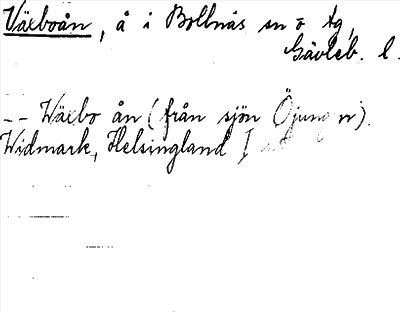 Växboån, å i Bollnäs sn o tg,
Gävleb. l.
-- Wäxbo ån (från sjön Öjung n).
Widmark, Helsingland I